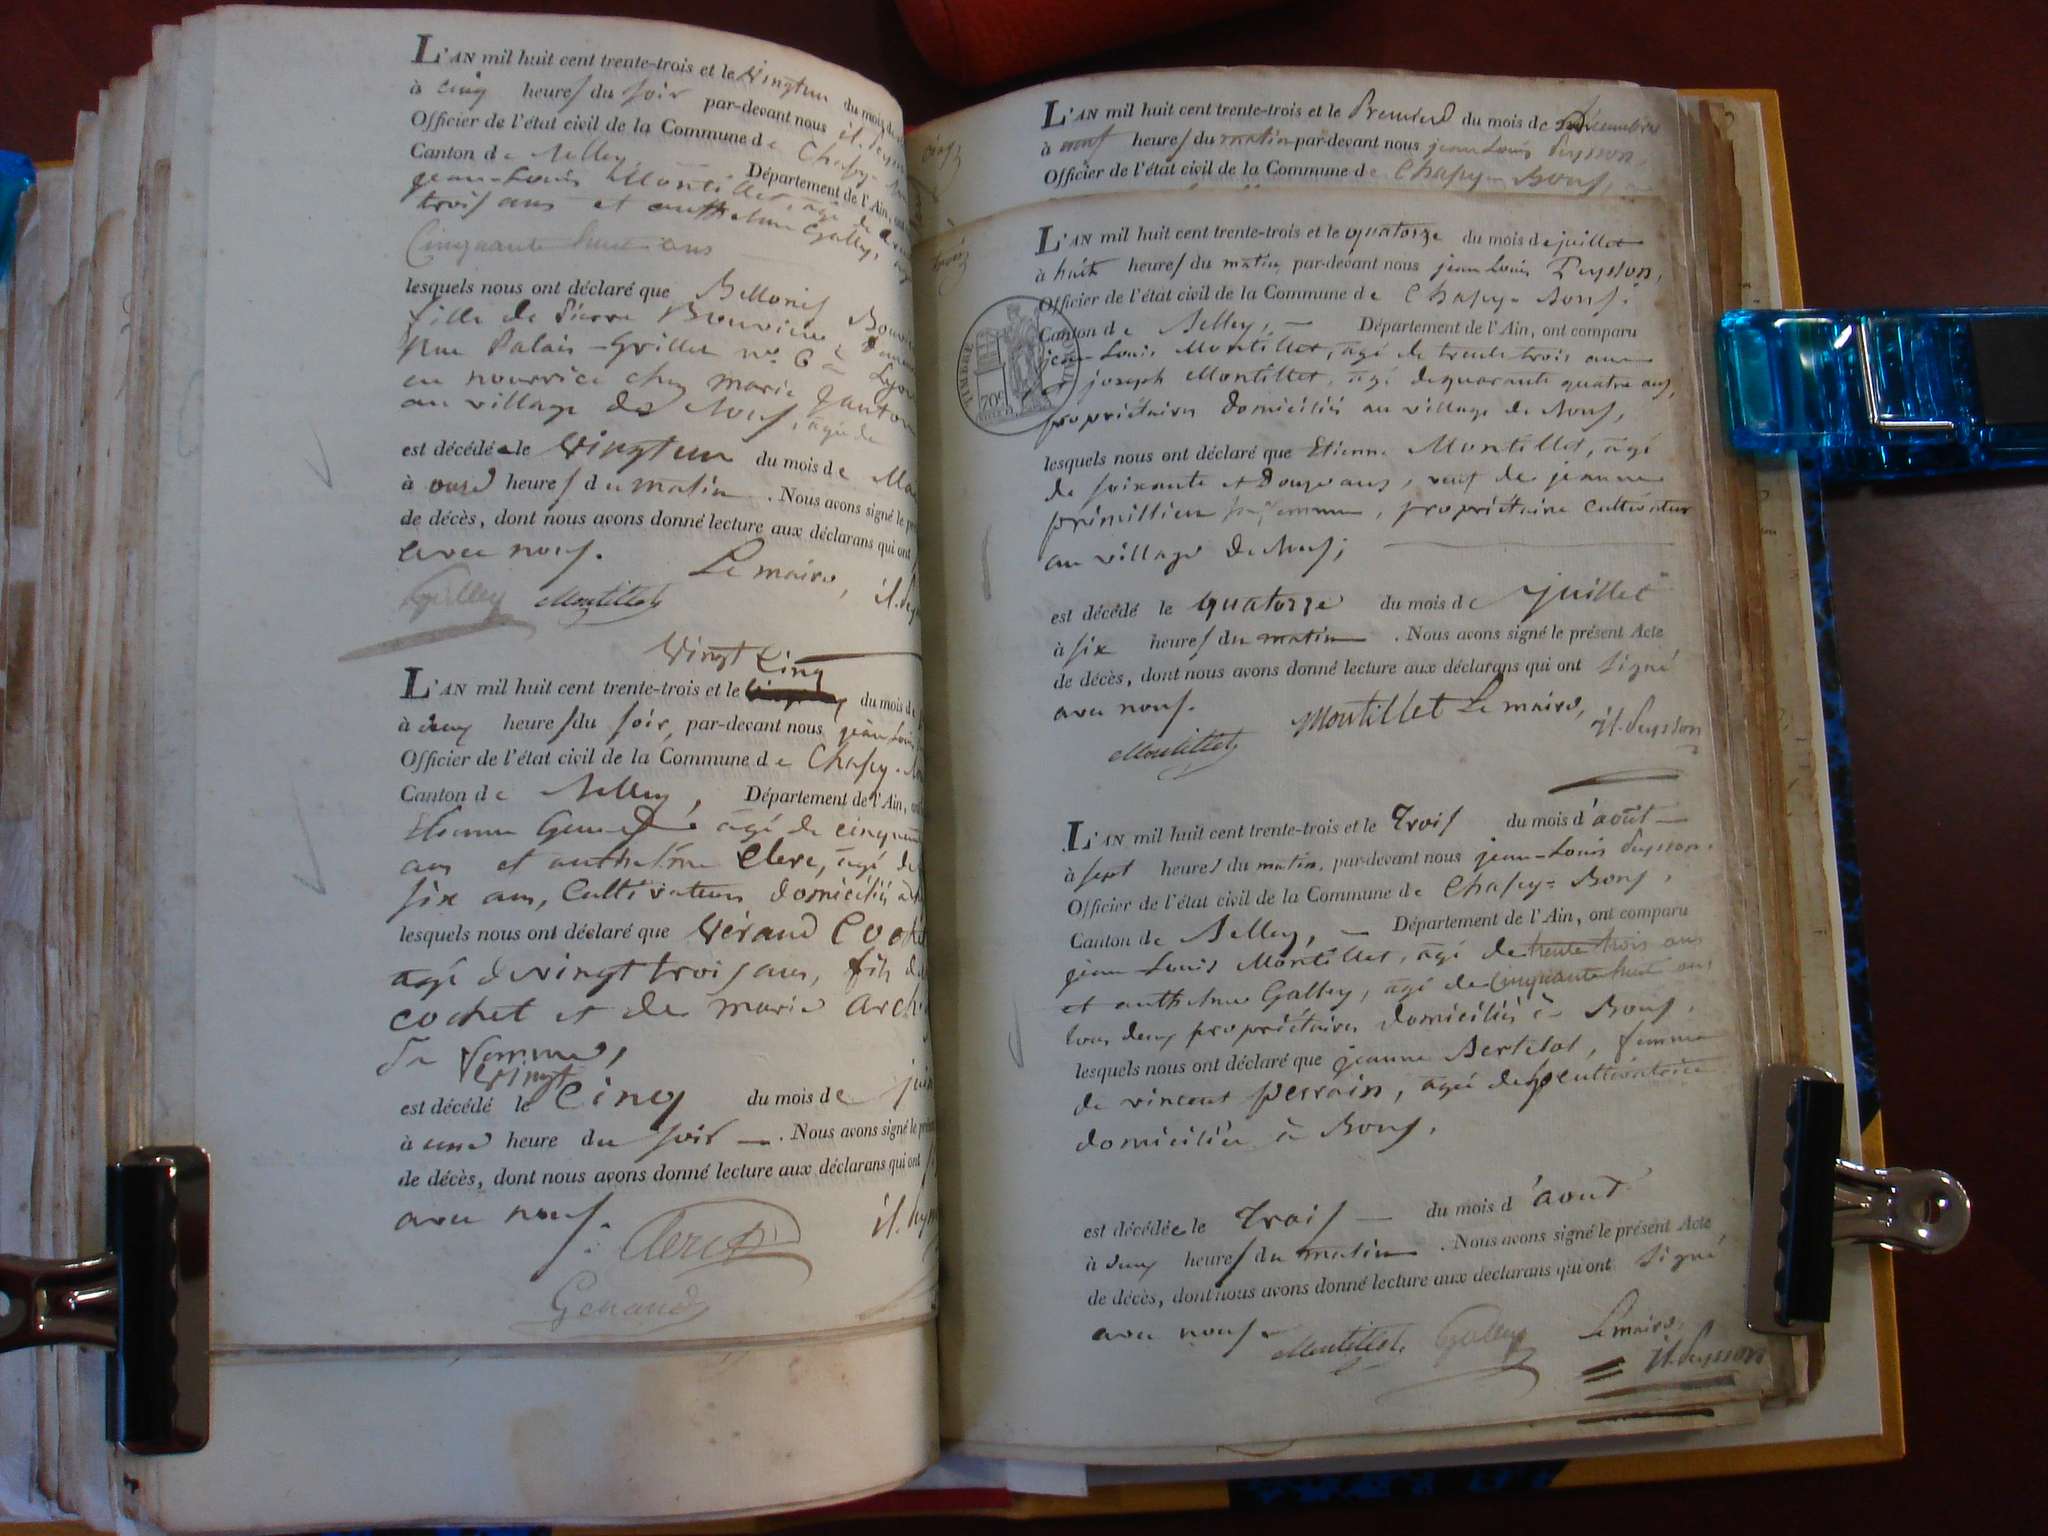 L'AN mil huit cent trente-trois et le vingtun du mois de
à cinq heures du soir par-devant nous
Officier de l'état civil de la Commune de Chasey-
Canton de Belley, Département de l'Ain,
jean-Louis Montillet, agé de
trois ans et anthelme Galley,
Cinquante huit ans
lesquels nous ont déclaré que
fille de Pierre Bouvier
Rue Palais-Grillet n° 6 à Lyon
en nourrice chez marie
au village de, agée de
est décédée le vingtun du mois de
à onze heures du matin. Nous avons signé le
de décès, dont nous avons donné lecture aux déclarans qui ont
avec nous. Le maire,
Galley Montillet
Vingt Cinq
L'AN mil huit cent trente-trois et le du mois de
à deux heures du soir, par-devant nous jean Louis
Officier de l'état civil de la Commune de Chasey-
Canton de Belley, Département de l'Ain,
Etienne agé de
ans et anthelme Clerc, agé de
six ans, Cultivateurs domiciliés à
lesquels nous ont déclaré que Véraud
agé de vingt trois ans, fils de
cochet et de marie
sa femme,
vingt
est décédé le cinq du mois de
à une heure du soir. Nous avons signé le
de décès, dont nous avons donné lecture aux déclarans qui ont
avec nous.
Clerc
L'AN mil huit cent trente-trois et le Premier du mois de Décembre
à neuf heures du matin par-devant nous jean Louis Peysson,
Officier de l'état civil de la Commune de Chasey- Bons,
L'AN mil huit cent trente-trois et le quatorze du mois de juillet
à huit heures du matin, par-devant nous jean Louis Peysson,
Officier de l'état civil de la Commune de Chasey- Bons.
Canton de Belley, — Département de l'Ain, ont comparu
TIMBRE ROYAL
70c
jean-Louis Montillet, agé de trente trois ans
et joseph Montillet, agé de quarante quatre ans,
propriétaires domiciliés au village de Bons,
lesquels nous ont déclaré que Etienne Montillet, agé
de soixante et Douze ans, veuf de jeanne
primillieu sa femme, propriétaire cultivateur
au village de Bons;
est décédé le quatorze du mois de juillet
à six heures du matin. Nous avons signé le présent Acte
de décès, dont nous avons donné lecture aux déclarans qui ont signé
avec nous. Montillet Le maire,
Montillet Jl. Peysson
L'AN mil huit cent trente-trois et le trois du mois d'août —
à sept heures du matin, par-devant nous jean-Louis Peysson,
Officier de l'état civil de la Commune de Chasey= Bons,
Canton de Belley, — Département de l'Ain, ont comparu
jean Louis Montillet, agé de trente trois ans
et anthelme Galley, agé de cinquante huit ans
tous deux propriétaires domiciliés à Bons,
lesquels nous ont déclaré que jeanne Bertelot, femme
de vincent perrain, agée de cultivatrice
domiciliée à Bons,
est décédée le trois — du mois d'aout
à deux heures du matin. Nous avons signé le présent Acte
de décès, dont nous avons donné lecture aux déclarans qui ont signé
avec nous. Montillet Galley Le maire,
Jl. Peysson